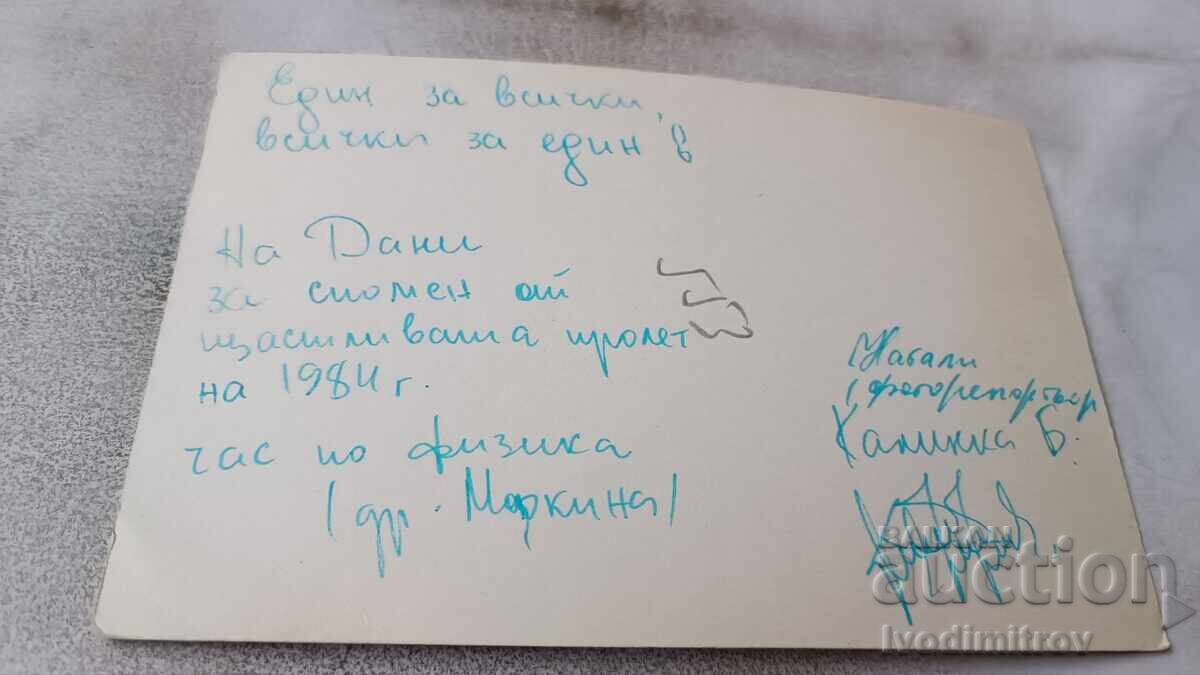 Един за всички,
всички за един!
На Дани
за спомен от
щастливата пролет
на 1984 г.
час по физика
(др. Маркина)
Натали
(фоторепортьор
Калинка Б.
БАЛКАН
auction
Ivodimitrov